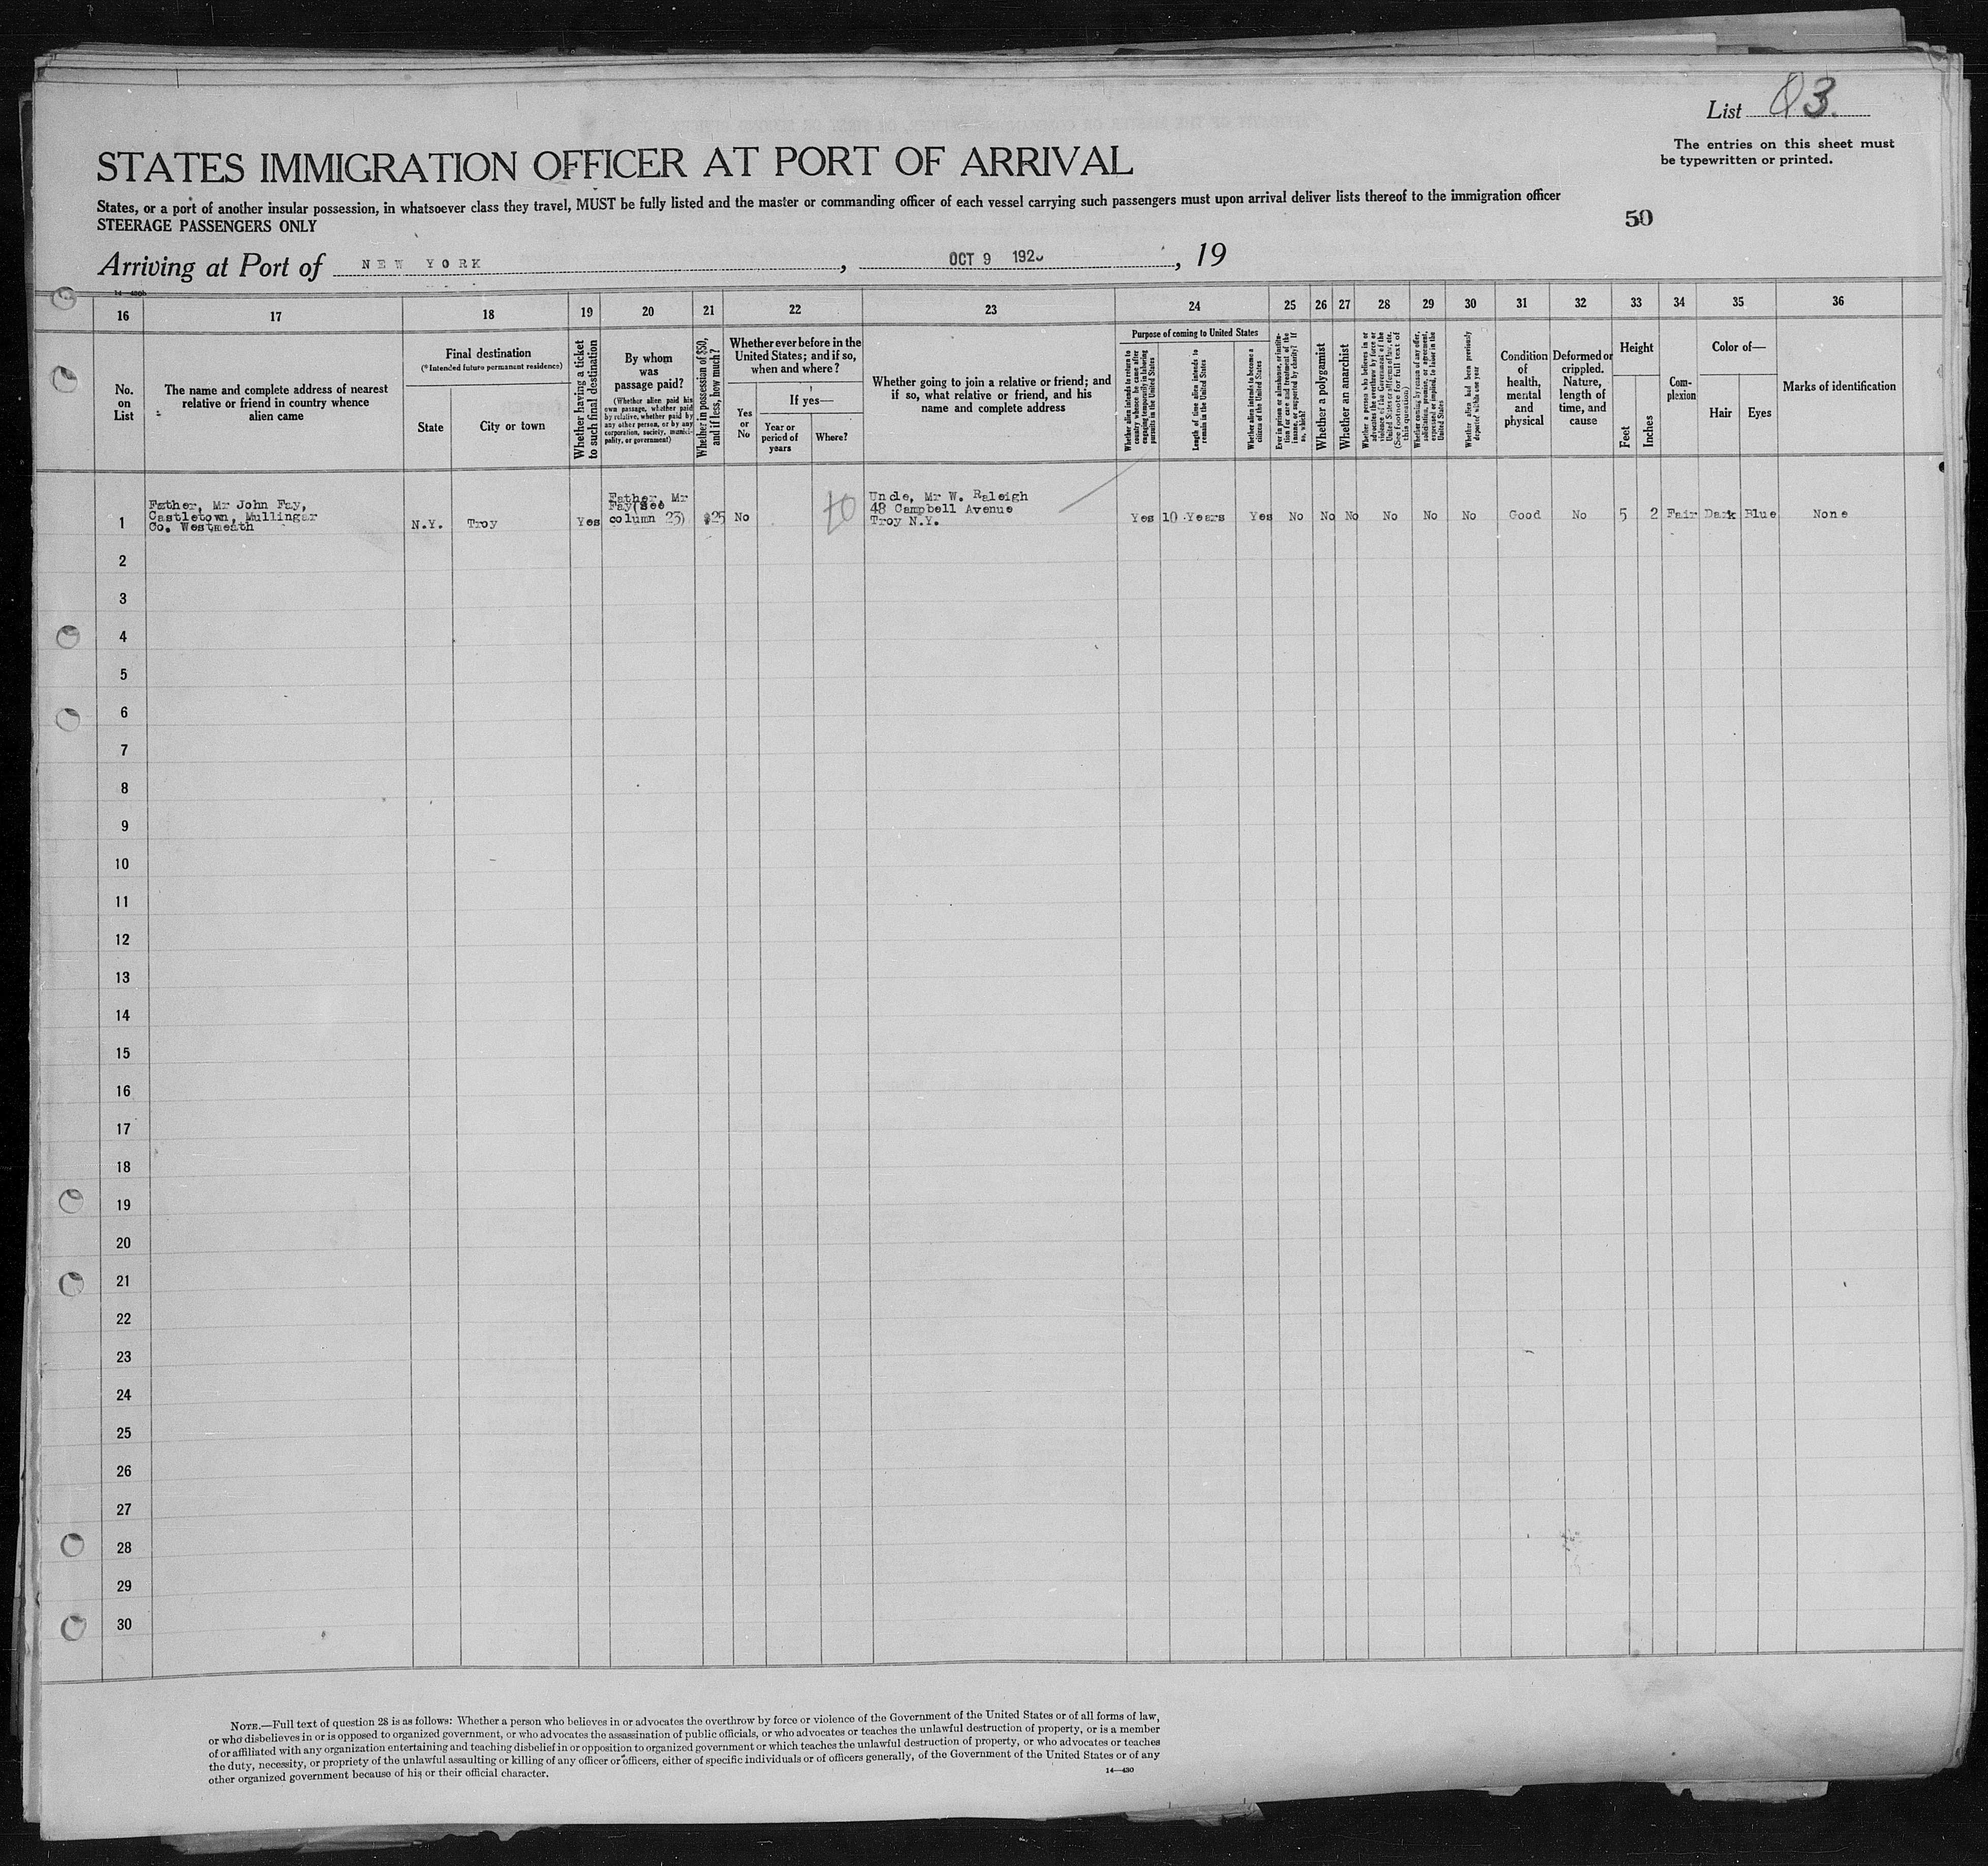 List Q3.
The entries on this sheet must
be typewritten or printed.
STATES IMMIGRATION OFFICER AT PORT OF ARRIVAL
States, or a port of another insular possession, in whatsoever class they travel, MUST be fully listed and the master or commanding officer of each vessel carrying such passengers must upon arrival deliver lists thereof to the immigration officer
STEERAGE PASSENGERS ONLY
50
Arriving at Port of NEW YORK, OCT 9 192, 19
14—430b
16 17 18 19 20 21 22 23 24 25 26 27 28 29 30 31 32 33 34 35 36
No.
on
List
The name and complete address of nearest
relative or friend in country whence
alien came
Final destination
(*Intended future permanent residence)
State
City or town
Whether having a ticket
to such final destination
By whom
was
passage paid?
(Whether alien paid his
own passage, whether paid
by relative, whether paid by
any other person, or by any
corporation, society, munici-
pality, or government)
Whether in possession of $50,
and if less, how much?
Whether ever before in the
United States; and if so,
when and where?
Yes
or
No
If yes—
Year or
period of
years
Where?
Whether going to join a relative or friend; and
if so, what relative or friend, and his
name and complete address
Purpose of coming to United States
Whether alien intends to return to
country whence he came after
engaging temporarily in laboring
pursuits in the United States
Length of time alien intends to
remain in the United States
Whether alien intends to become a
citizen of the United States
Ever in prison or almshouse, or institu-
tion for care and treatment of the
insane, or supported by charity? If
so, which?
Whether a polygamist
Whether an anarchist
Whether a person who believes in or
advocates the overthrow by force or
violence of the Government of the
United States or all forms of law, etc.
(See footnote for full text of
this question)
Whether coming by reason of any offer,
solicitation, promise, or agreement,
expressed or implied, to labor in the
United States
Whether alien had been previously
deported within one year
Condition
of
health,
mental
and
physical
Deformed or
crippled.
Nature,
length of
time, and
cause
Height
Feet
Inches
Com-
plexion
Color of—
Hair
Eyes
Marks of identification
1
Father, Mr John Fay,
Castletown, Mullingar
Co. Westmeath
N.Y.
Troy
Yes
Father, Mr
Fay(See
column 23)
$25
No
Uncle, Mr W. Raleigh
48 Campbell Avenue
Troy N.Y.
Yes 10 Years Yes No No No No No No Good No 5 2 Fair Dark Blue None
2
3
4
5
6
7
8
9
10
11
12
13
14
15
16
17
18
19
20
21
22
23
24
25
26
27
28
29
30
NOTE.—Full text of question 28 is as follows: Whether a person who believes in or advocates the overthrow by force or violence of the Government of the United States or of all forms of law,
or who disbelieves in or is opposed to organized government, or who advocates the assassination of public officials, or who advocates or teaches the unlawful destruction of property, or is a member
of or affiliated with any organization entertaining and teaching disbelief in or opposition to organized government or which teaches the unlawful destruction of property, or who advocates or teaches
the duty, necessity, or propriety of the unlawful assaulting or killing of any officer or officers, either of specific individuals or of officers generally, of the Government of the United States or of any
other organized government because of his or their official character.
14—430